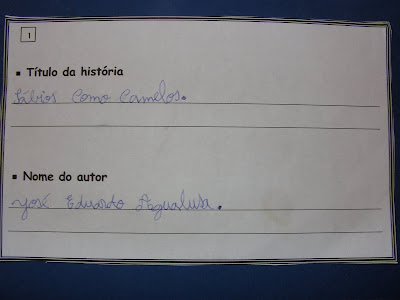 1
▪ Título da história
Sábios Como Camelos.
▪ Nome do autor
José Eduardo Agualusa.